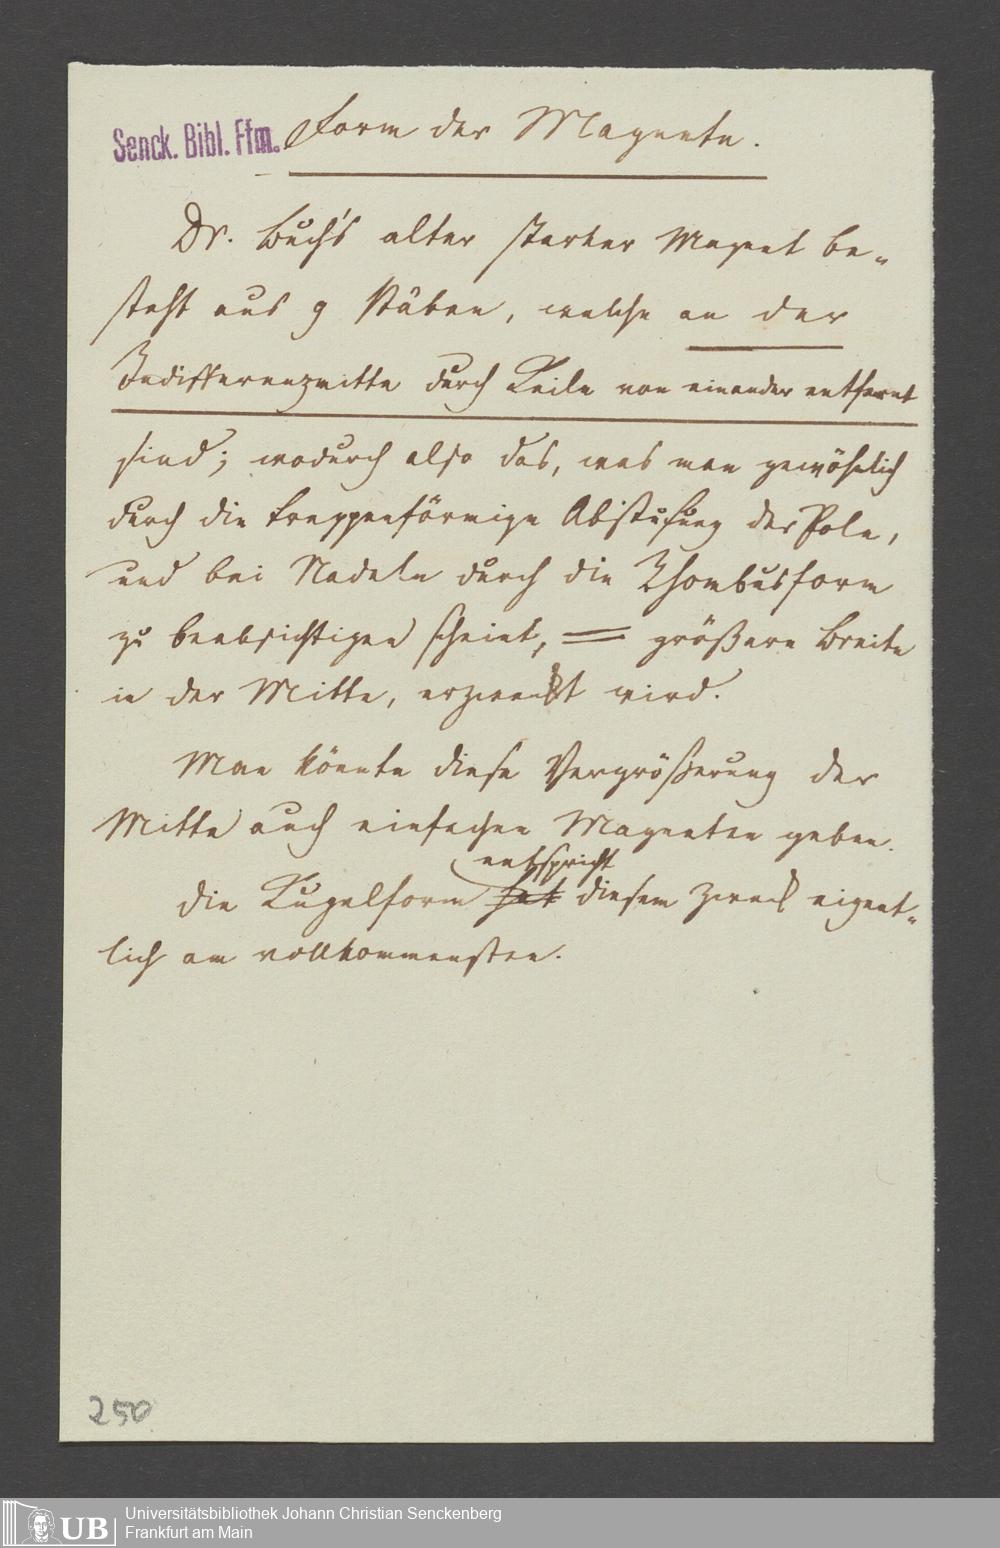 Senck. Bibl. Ffm.
Form der Magnete.
Dr. Buch's alter starker Magnet be-
steht aus 9 Stäben, welche an der
Indifferenzmitte durch Keile von einander entfernt
sind; wodurch also das, was man gewöhnlich
durch die treppenförmige Abstufung der Pole,
und bei Nadeln durch die Rhombusform
zu beabsichtigen scheint, = größere Breite
in der Mitte, erzweckt wird.
Man könnte diese Vergrößerung der
Mitte auch einfachen Magneten geben.
entspricht
die Kugelform hat diesem Zweck eigent-
lich am vollkommensten.
250
UB
Universitätsbibliothek Johann Christian Senckenberg
Frankfurt am Main